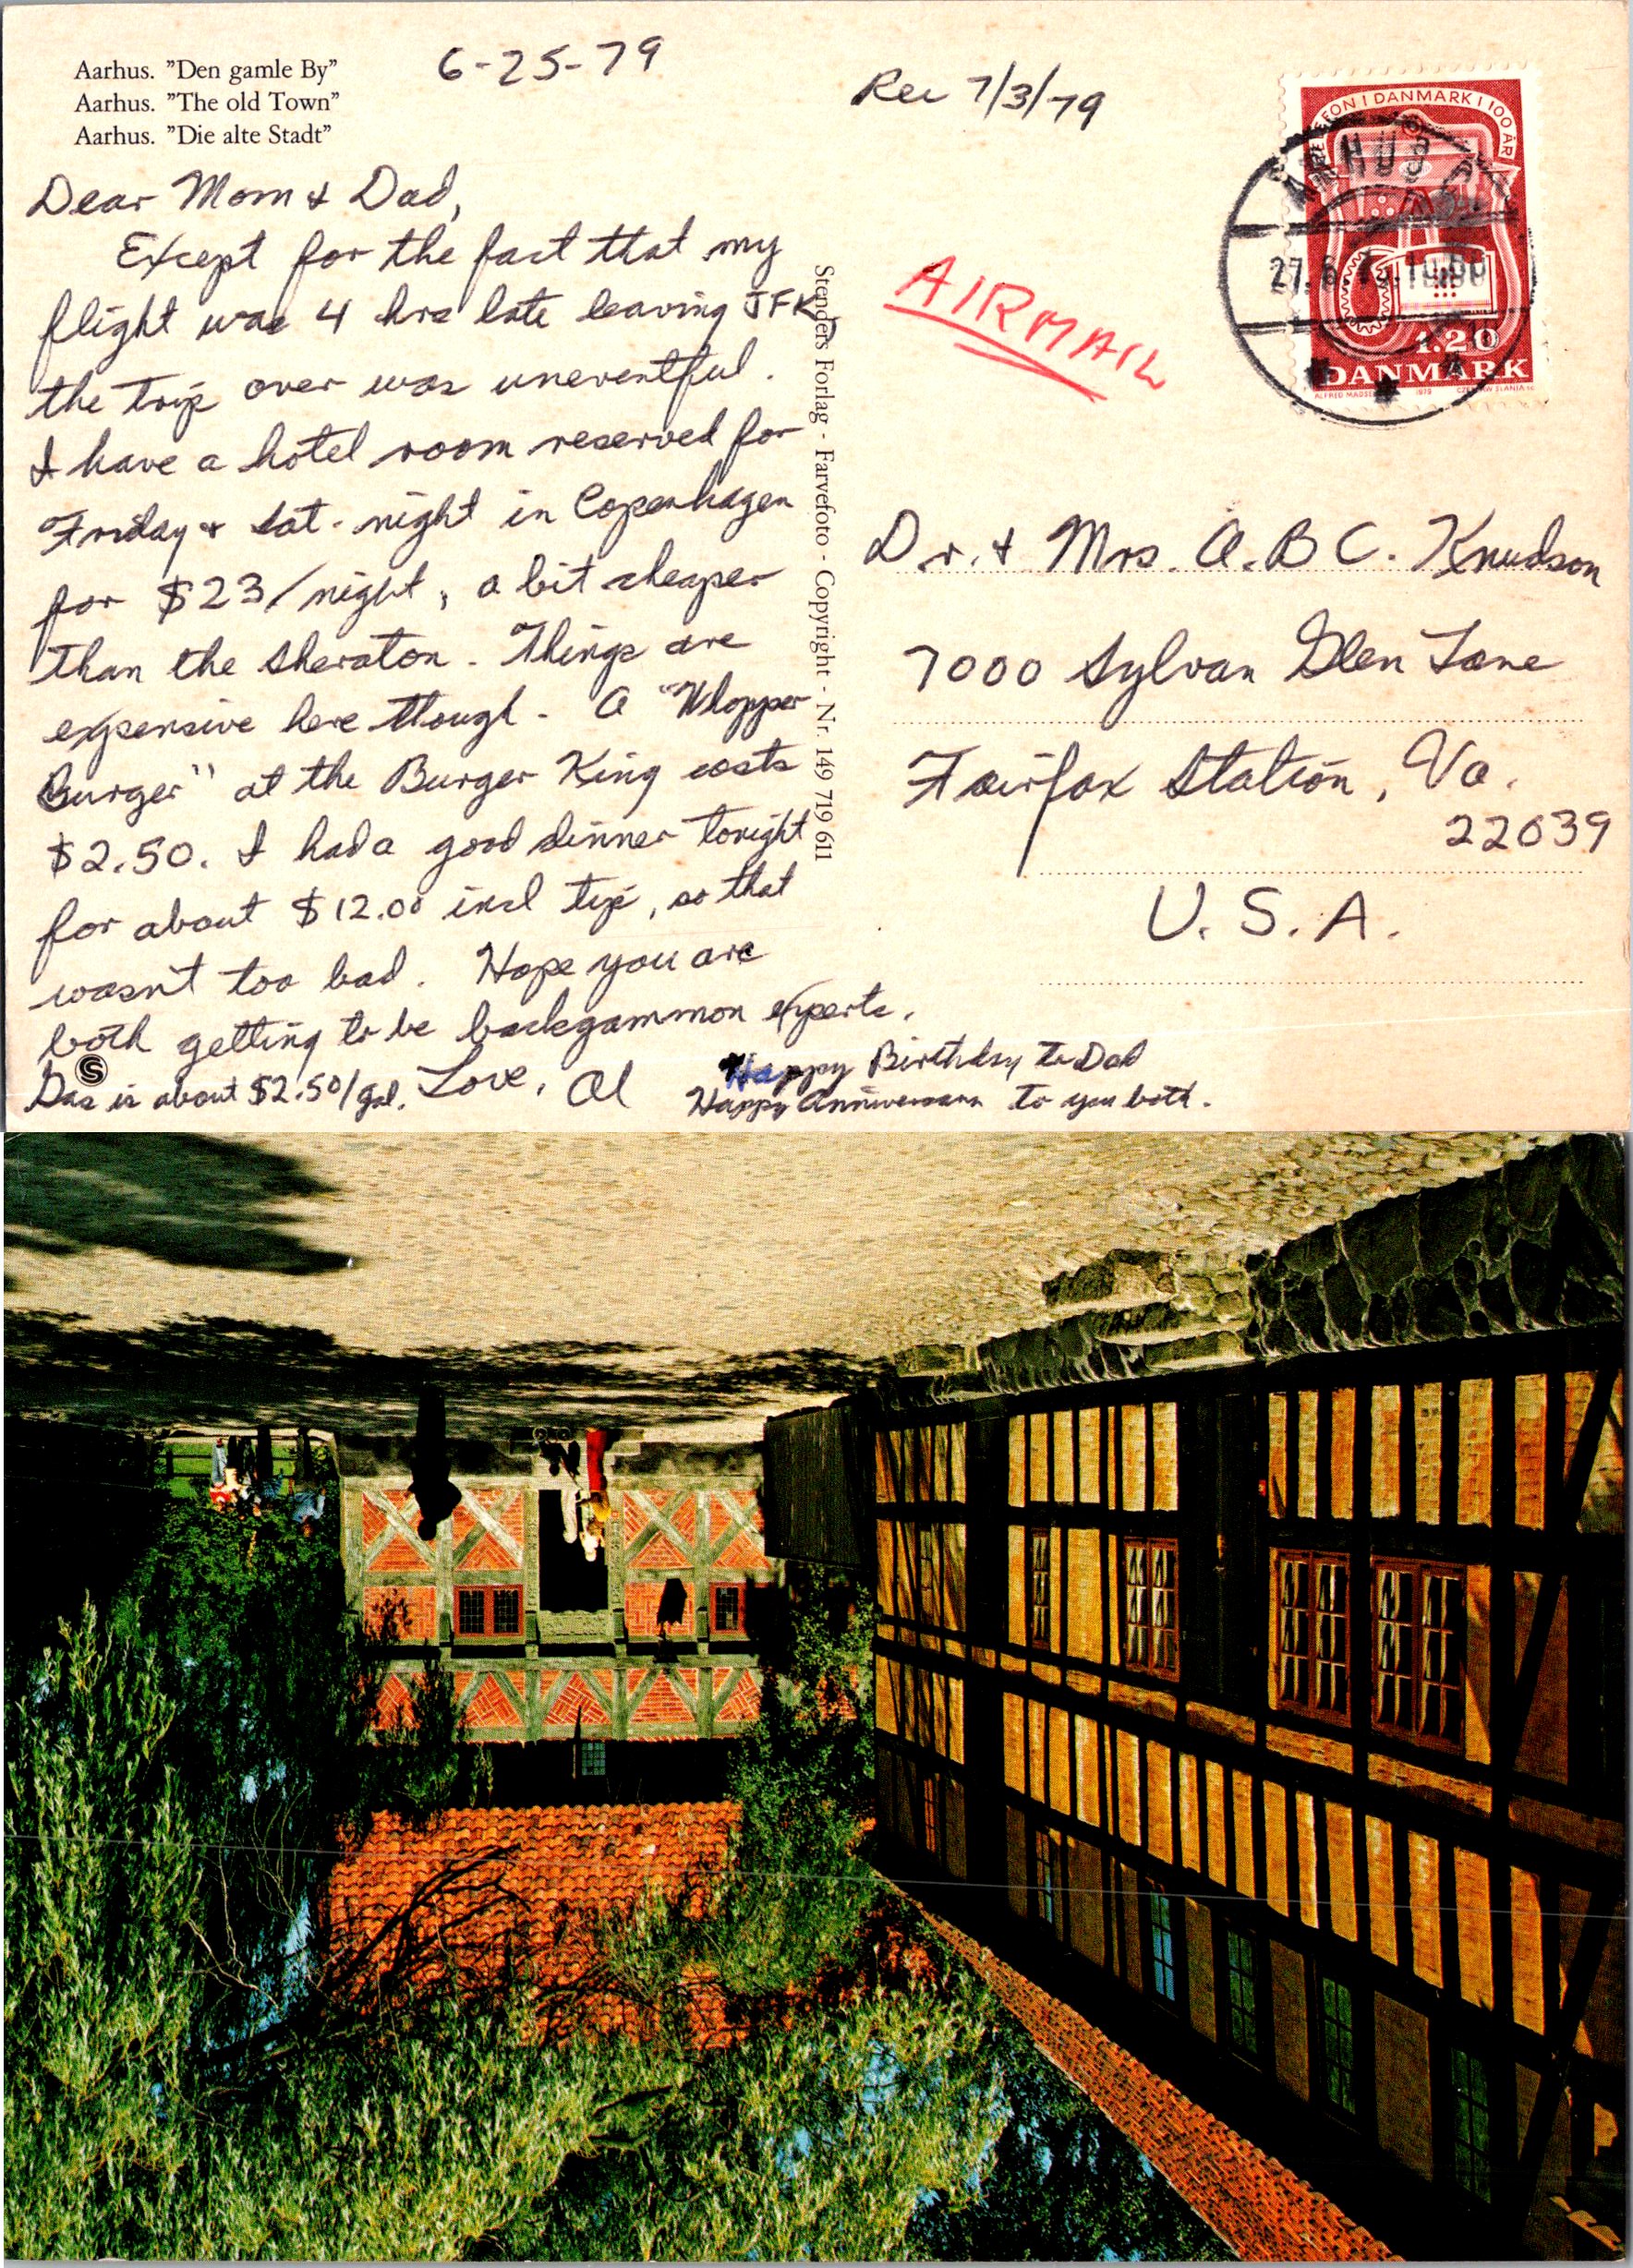 Aarhus. ”Den gamle By”
Aarhus. ”The old Town”
Aarhus. ”Die alte Stadt”
6-25-79
Dear Mom & Dad,
Except for the fact that my
flight was 4 hrs late leaving JFK,
the trip over was uneventful.
I have a hotel room reserved for
Friday & Sat. night in Copenhagen
for $23/night, a bit cheaper
than the Sheraton. Things are
expensive here though. A "Whopper
Burger" at the Burger King costs
$2.50. I had a good dinner tonight
for about $12.00 incl tip, so that
wasn't too bad. Hope you are
both getting to be backgammon experts.
Gas is about $2.50/gal. Love, Al
Happy Birthday to Dad
Happy Anniversary to you both.
S
Stenders Forlag - Farvefoto - Copyright - Nr. 149 719 611
Rec 7/3/79
AIRMAIL
TELEFON I DANMARK I 100 ÅR
ÅRHUS
27.6
1.20
DANMARK
ALFRED MADSEN 1979 CZESLAW SLANIA SC
Dr. & Mrs. A.B C. Knudson
7000 Sylvan Glen Lane
Fairfax Station, Va.
22039
U.S.A.